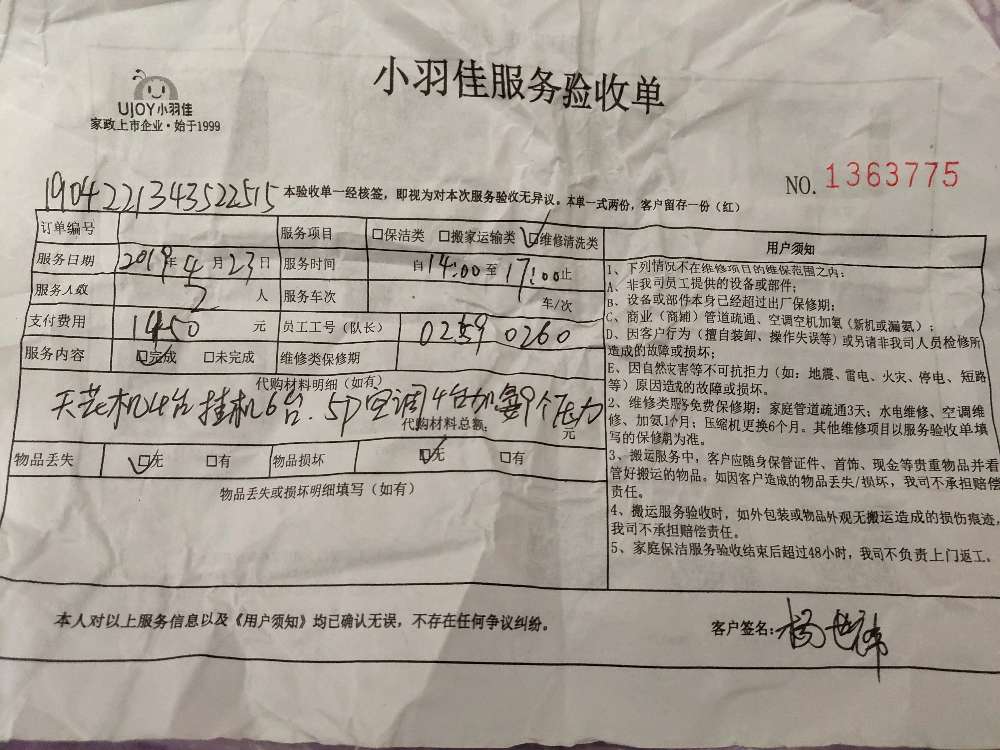 小羽佳服务验收单
UJOY小羽佳
家政上市企业·始于1999
NO. 1363775
1904221343522515 本验收单一经核签，即视为对本次服务验收无异议。本单一式两份，客户留存一份（红）
订单编号 服务项目 □保洁类 □搬家运输类 □维修清洗类
服务日期 2019年4月23日 服务时间 自14:00至17:00止
服务人数 2 人 服务车次 车/次
支付费用 1450 元 员工工号（队长） 0259 0260
服务内容 □完成 □未完成 维修类保修期
代购材料明细（如有）
天花机4台 挂机6台.5P空调4台加 9个压力
代购材料总额: 元
物品丢失 □无 □有 物品损坏 □无 □有
物品丢失或损坏明细填写（如有）
用户须知
1、下列情况不在维修项目的维保范围之内:
A、非我司员工提供的设备或部件;
B、设备或部件本身已经超过出厂保修期;
C、商业（商铺）管道疏通、空调空机加氨（新机或漏氨）;
D、因客户行为（擅自装卸、操作失误等）或另请非我司人员检修所
造成的故障或损坏;
E、因自然灾害等不可抗拒力（如: 地震、雷电、火灾、停电、短路
等）原因造成的故障或损坏。
2、维修类服务免费保修期: 家庭管道疏通3天; 水电维修、空调维
修、加氨1个月; 压缩机更换6个月。其他维修项目以服务验收单填
写的保修期为准。
3、搬运服务中，客户应随身保管证件、首饰、现金等贵重物品并看
管好搬运的物品。如因客户造成的物品丢失/损坏，我司不承担赔偿
责任。
4、搬运服务验收时，如外包装或物品外观无搬运造成的损伤痕迹，
我司不承担赔偿责任。
5、家庭保洁服务验收结束后超过48小时，我司不负责上门返工。
本人对以上服务信息以及《用户须知》均已确认无误，不存在任何争议纠纷。
客户签名: 杨